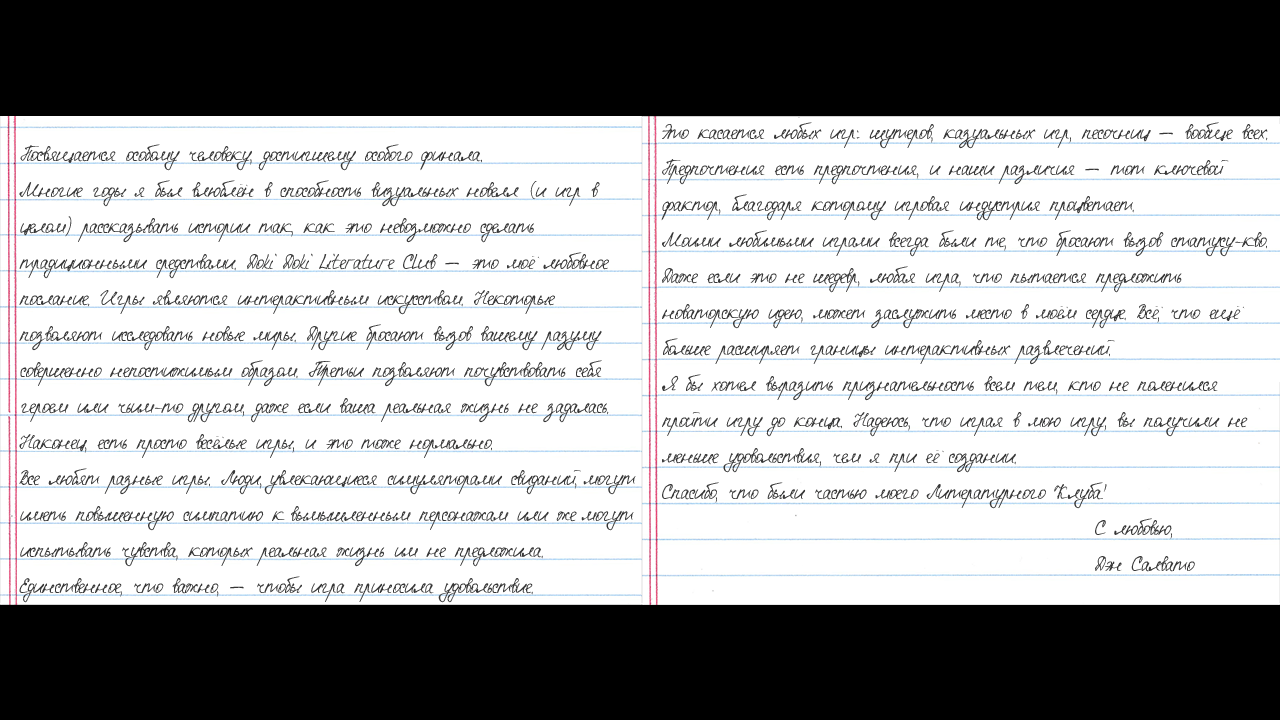 Посвящается особому человеку, достигшему особого финала.
Многие годы я был влюблён в способность визуальных новелл (и игр в
целом) рассказывать истории так, как это невозможно сделать
традиционными средствами. Doki Doki Literature Club — это моё любовное
послание. Игры являются интерактивным искусством. Некоторые
позволяют исследовать новые миры. Другие бросают вызов вашему разуму
совершенно непостижимым образом. Третьи позволяют почувствовать себя
героем или чьим-то другом, даже если ваша реальная жизнь не задалась.
Наконец, есть просто весёлые игры, и это тоже нормально.
Все любят разные игры. Люди, увлекающиеся симуляторами свиданий, могут
иметь повышенную симпатию к вымышленным персонажам или же могут
испытывать чувства, которых реальная жизнь им не предложила.
Единственное, что важно, — чтобы игра приносила удовольствие.
Это касается любых игр: шутеров, казуальных игр, песочниц — вообще всех.
Предпочтения есть предпочтения, и наши различия — тот ключевой
фактор, благодаря которому игровая индустрия процветает.
Моими любимыми играми всегда были те, что бросают вызов статусу-кво.
Даже если это не шедевр, любая игра, что пытается предложить
новаторскую идею, может заслужить место в моём сердце. Всё, что ещё
больше расширяет границы интерактивных развлечений.
Я бы хотел выразить признательность всем тем, кто не поленился
пройти игру до конца. Надеюсь, что играя в мою игру, вы получили не
меньше удовольствия, чем я при её создании.
Спасибо, что были частью моего Литературного Клуба!
С любовью,
Дэн Салвато